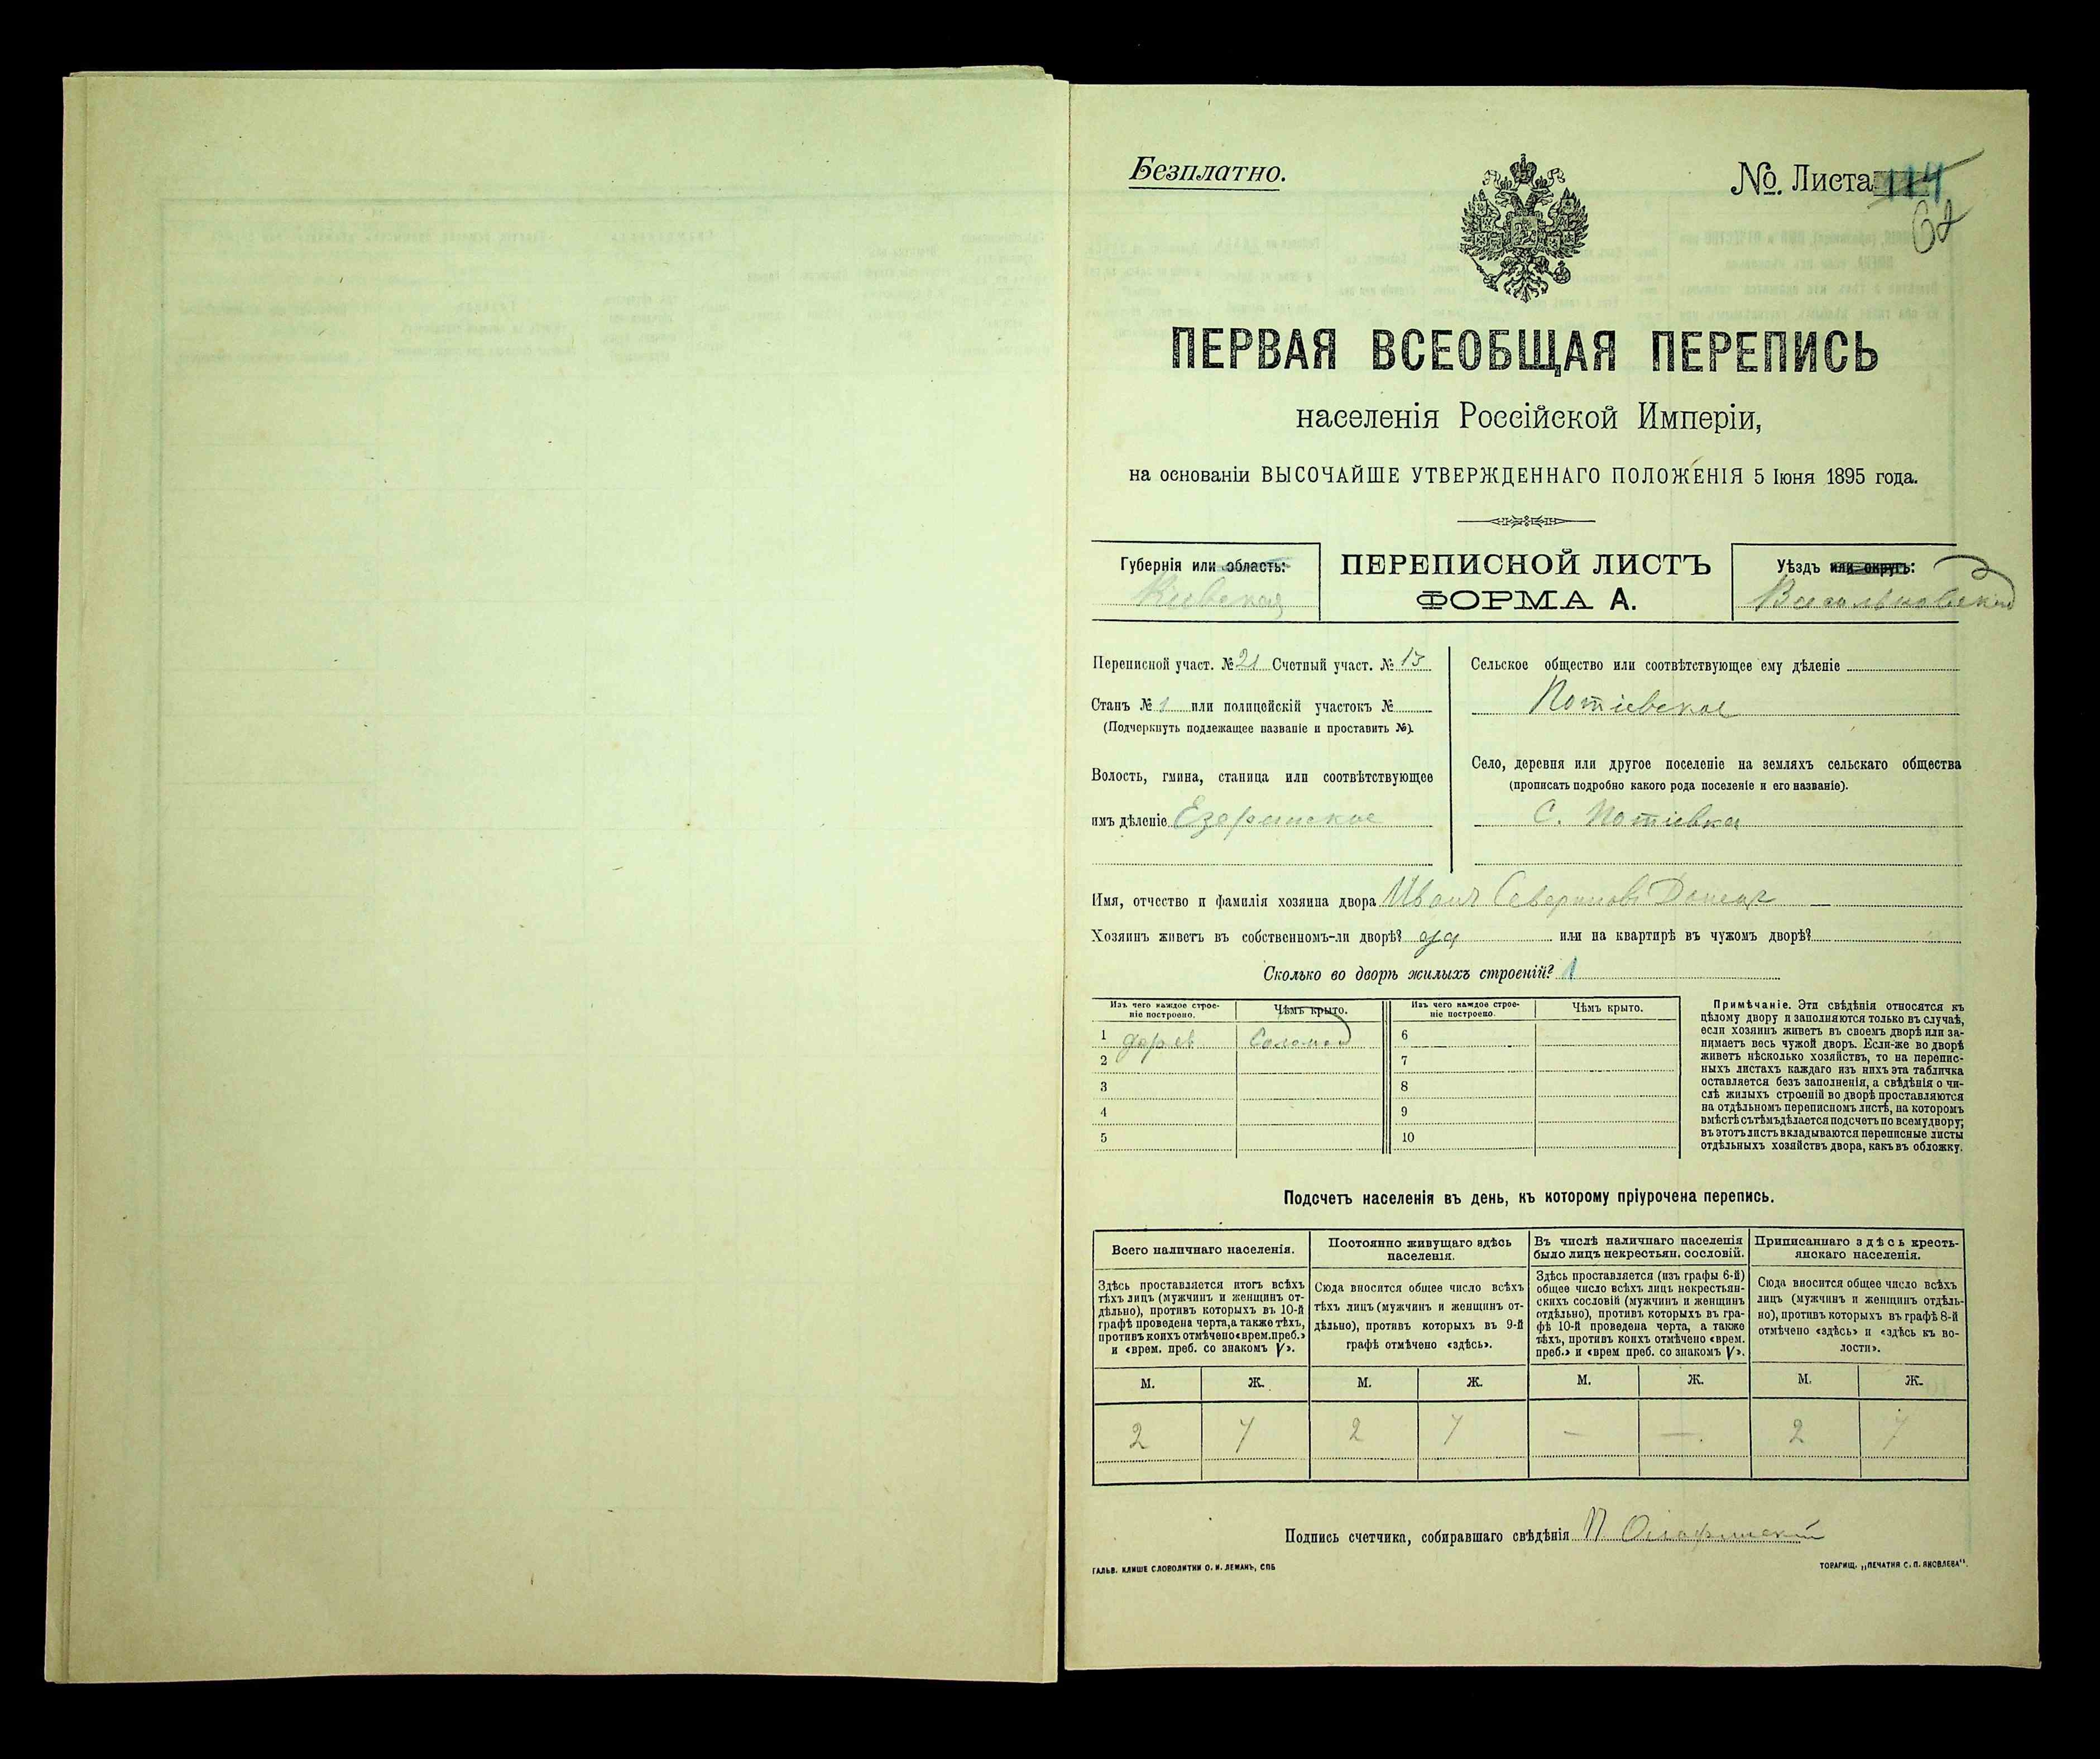 Безплатно.
№. Листа 114
62
ПЕРВАЯ ВСЕОБЩАЯ ПЕРЕПИСЬ
населенія Россійской Имперіи,
на основаніи ВЫСОЧАЙШЕ УТВЕРЖДЕННАГО ПОЛОЖЕНІЯ 5 Іюня 1895 года.
Губернія или область:
Кіевская
ПЕРЕПИСНОЙ ЛИСТЪ
ФОРМА А.
Уѣздъ или округъ:
Васильковскій
Переписной участ. № 21 Счетный участ. № 13
Станъ № 1 или полицейскій участокъ №
(Подчеркнуть подлежащее названіе и проставить №).
Волость, гмина, станица или соотвѣтствующее
имъ дѣленіе Езеринское
Сельское общество или соотвѣтствующее ему дѣленіе
Потіевское
Село, деревня или другое поселеніе на земляхъ сельскаго общества
(прописать подробно какого рода поселеніе и его названіе).
С. Потіевка
Имя, отчество и фамилія хозяина двора Иванъ Севериновъ
Хозяинъ живетъ въ собственномъ-ли дворѣ? да или на квартирѣ въ чужомъ дворѣ?
Сколько во дворѣ жилыхъ строеній? 1
Изъ чего каждое строе-
ніе построено.
Чѣмъ крыто.
Изъ чего каждое строе-
ніе построено.
Чѣмъ крыто.
1 дерев Солома 6
2 7
3 8
4 9
5 10
Примѣчаніе. Эти свѣдѣнія относятся къ
цѣлому двору и заполняются только въ случаѣ,
если хозяинъ живетъ въ своемъ дворѣ или за-
нимаетъ весь чужой дворъ. Если-же во дворѣ
живетъ нѣсколько хозяйствъ, то на перепис-
ныхъ листахъ каждаго изъ нихъ эта табличка
оставляется безъ заполненія, а свѣдѣнія о чи-
слѣ жилыхъ строеній во дворѣ проставляются
на отдѣльномъ переписномъ листѣ, на которомъ
вмѣстѣ съ тѣмъ дѣлается подсчетъ по всему двору;
въ этотъ листъ вкладываются переписные листы
отдѣльныхъ хозяйствъ двора, какъ въ обложку.
Подсчетъ населенія въ день, къ которому пріурочена перепись.
Всего наличнаго населенія.
Здѣсь проставляется итогъ всѣхъ
тѣхъ лицъ (мужчинъ и женщинъ от-
дѣльно), противъ которыхъ въ 10-й
графѣ проведена черта, а также тѣхъ,
противъ коихъ отмѣчено «врем. преб.»
и «врем. преб. со знакомъ V».
Постоянно живущаго здѣсь
населенія.
Сюда вносится общее число всѣхъ
тѣхъ лицъ (мужчинъ и женщинъ от-
дѣльно), противъ которыхъ въ 9-й
графѣ отмѣчено «здѣсь».
Въ числѣ наличнаго населенія
было лицъ некрестьян. сословій.
Здѣсь проставляется (изъ графы 6-й)
общее число всѣхъ лицъ некрестьян-
скихъ сословій (мужчинъ и женщинъ
отдѣльно), противъ которыхъ въ гра-
фѣ 10-й проведена черта, а также
тѣхъ, противъ коихъ отмѣчено «врем.
преб.» и «врем преб. со знакомъ V».
Приписаннаго здѣсь кресть-
янскаго населенія.
Сюда вносится общее число всѣхъ
лицъ (мужчинъ и женщинъ отдѣль-
но), противъ которыхъ въ графѣ 8-й
отмѣчено «здѣсь» и «здѣсь къ во-
лости».
М. Ж. М. Ж. М. Ж. М. Ж.
2 4 2 4 — —. 2 4
Подпись счетчика, собиравшаго свѣдѣнія П
ГАЛЬВ. КЛИШЕ СЛОВОЛИТНИ О. И. ЛЕМАНЪ, СПБ
ТОВАРИЩ. „ПЕЧАТНЯ С. П. ЯКОВЛЕВА".